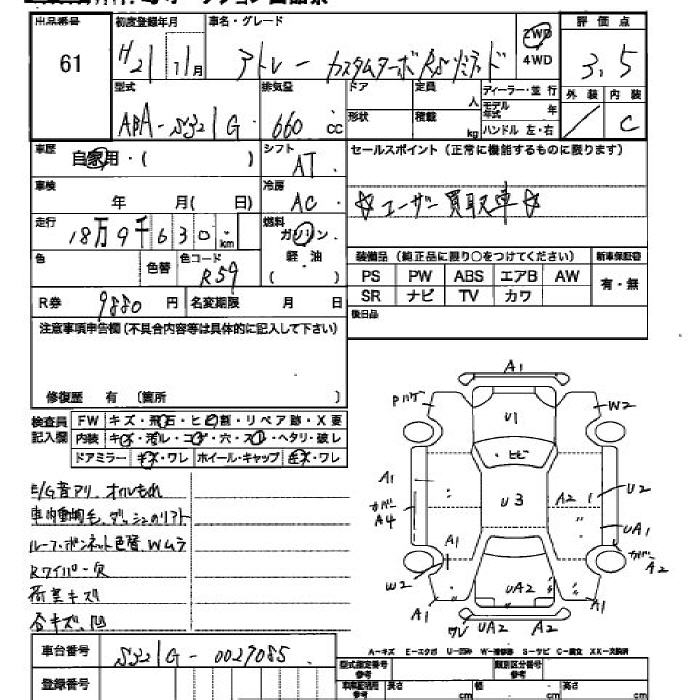 出品番号 初度登録年月 車名・グレード 評価点
61 H21 11月 アトレー カスタムターボRSリミテッド 2WD 4WD 3.5
型式 排気量 ドア 定員 人 ディーラー・並行 外装 内装
ABA-S321G 660 cc 形状 積載 kg モデル年式 年 ハンドル 左・右 / C
車歴 自家用・( ) シフト AT セールスポイント (正常に機能するものに限ります)
車検 年 月( 日) 冷房 AC ☆ユーザー買取車☆
走行 18万9千630 km 燃料 ガソリン
軽油
( )
色 色替 色コード R59
装備品 (純正品に限り○をつけてください) 新車保証書
PS PW ABS エアB AW 有・無
SR ナビ TV カワ
R券 9880 円 名変期限 月 日 後日品
注意事項申告欄(不具合内容等は具体的に記入して下さい)
修復歴 有 (箇所 )
検査員記入欄 FW キズ・飛石・ヒビ割・リペア跡・X要
内装 キズ・ヨゴレ・コゲ・穴・スレ・ヘタリ・破レ
ドアミラー キズ・ワレ ホイール・キャップ キズ・ワレ
E/G音アリ、オイルもれ
車内動物毛、ダッシュのリフト
ルーフ・ボンネット色替 Wムラ
Rワイパー欠
荷室キズ
各キズ、凹
A1
Pハゲ W2
U1
ヒビ
A1 U3 A2 U2
カバー A4 UA1
A1 カバー A2
W2 UA2
A1 ワレ UA2 A2 A1
A-キズ E-エクボ U-凹み W-補修跡 S-サビ C-腐食 XX-交換済
車台番号 S321G-0027085 型式指定番号 類別区分番号
登録番号 長さ cm 幅 cm 高さ cm